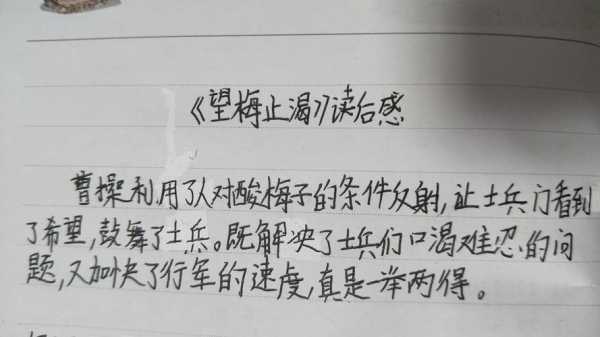 《望梅止渴》读后感
曹操利用了人对酸梅子的条件反射,让士兵们看到
了希望,鼓舞了士兵。既解决了士兵们口渴难忍的问
题,又加快了行军的速度,真是一举两得。